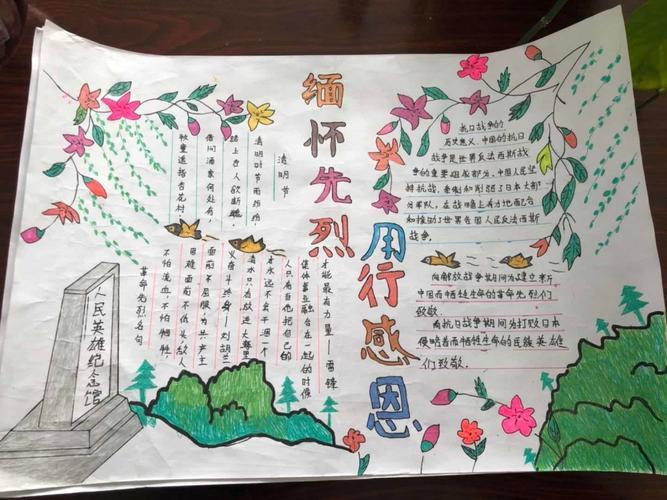 缅怀先烈
用行感恩
清明节
清明时节雨纷纷,
路上行人欲断魂。
借问酒家何处有,
牧童遥指杏花村。
革命先烈名句
不怕流血不怕牺牲
困难面前不低头敌人
面前不屈服,为共产主
义奋斗终身——刘胡兰
水只有放进大海里
才永远不会干涸一个
人只有当他把自己和
集体事业融合在一起的时候
才能最有力量——雷锋
抗日战争的
历史意义,中国的抗日
战争是世界反法西斯战
争的重要组成部分,中国人民坚
持抗战,牵制和削弱了日本大部
分军队,在战略上有力地配合
和援助了世界各国人民反法西斯
战争。
向解放战争期间为建立新
中国而牺牲生命的革命先烈们
致敬。
向抗日战争期间为打败日本
侵略者而牺牲生命的民族英雄
们致敬。
人民英雄纪念馆